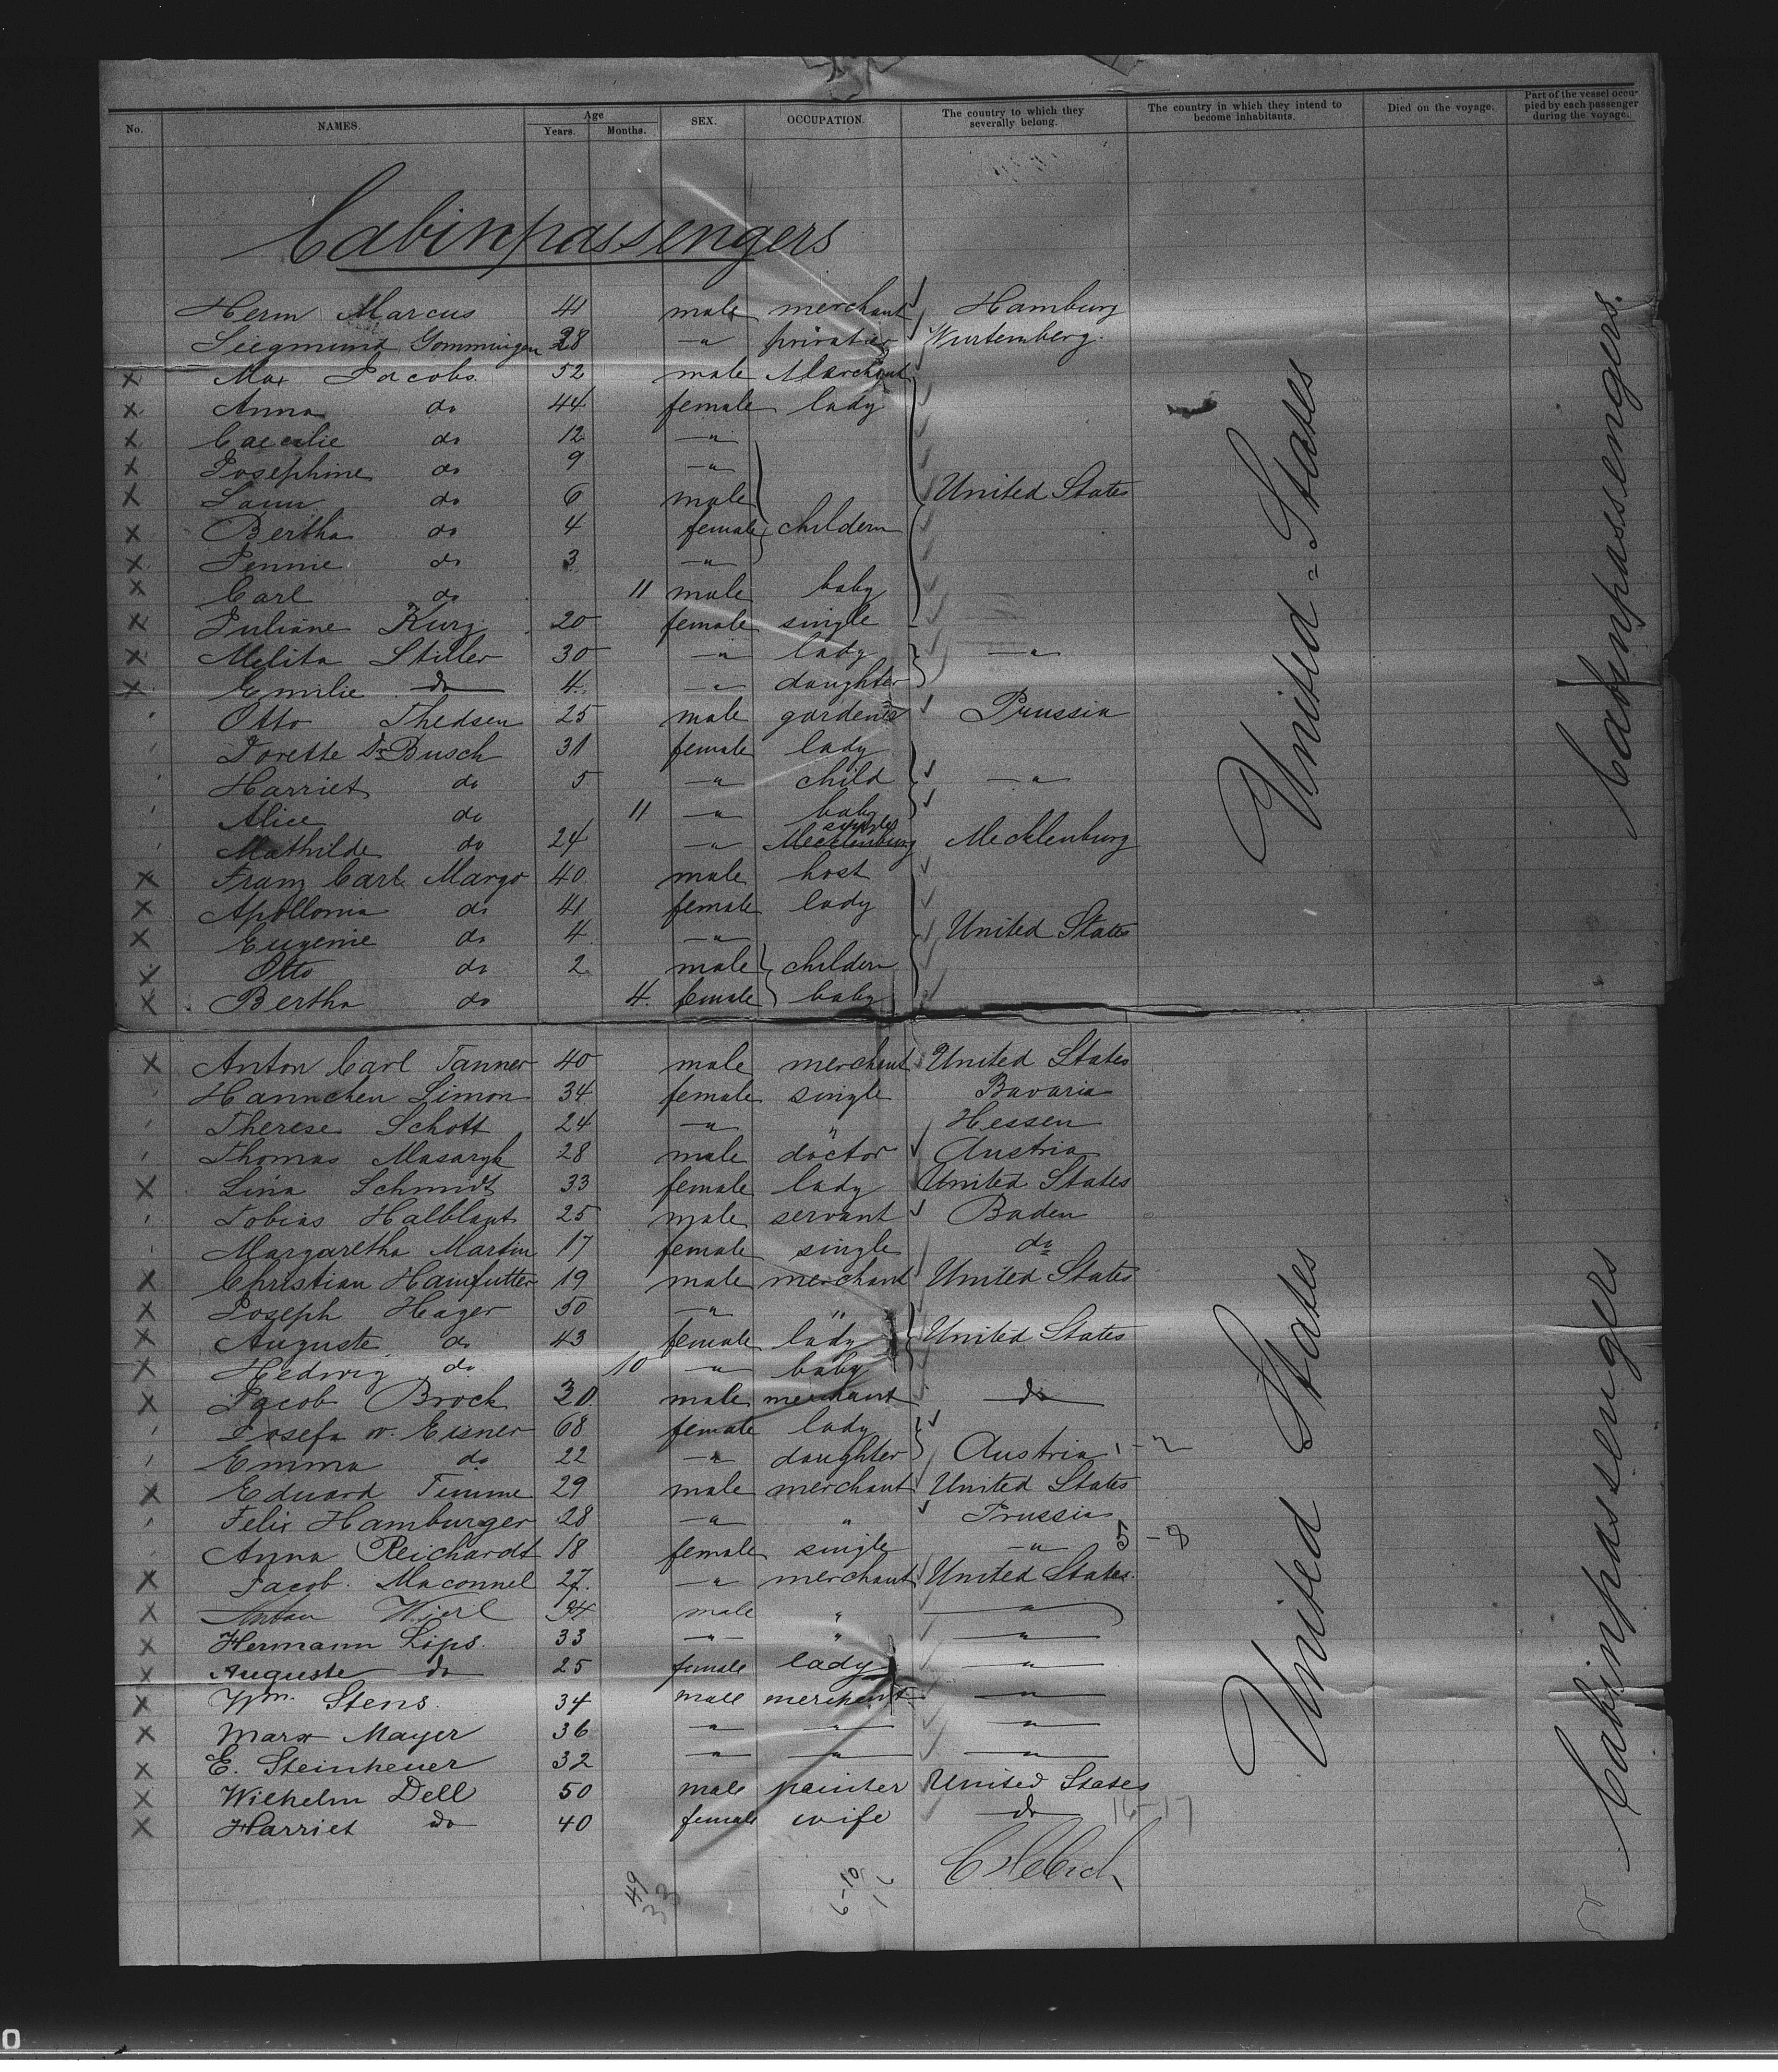 No. NAMES. Age Years. Months. SEX. OCCUPATION. The country to which they severally belong. The country in which they intend to become inhabitants. Died on the voyage. Part of the vessel occupied by each passenger during the voyage.
Cabinpassengers
Herm Marcus 41 male merchant Hamburg
Siegmund Gommingen 28 —"— privatier Wurtemberg.
x Max Jacobs 52 male Marchant
x Anna do 44 female lady
x Caecilie do 12 —"—
x Josephine do 9 —"—
x do 6 male United States
x Bertha do 4 female childern
x Jennie do 3 —"—
x Carl do 11 male baby
x Juliane Kurz 20 female single
x Melita Stiller 30 —"— lady —"—
x Emilie do 4. —"— daughter
Otto Thedsen 25 male gardener Prussia
Dorette Busch 31 female lady
Harriet do 5 —"— child —"—
Alice do 11 —"— baby
Mathilde do 24 —"— Mecklenburg single Mecklenburg
x Franz Carl Margo 40 male host
x Apollonia do 41 female lady
x Eugenie do 4. —"— United States
x Otto do 2 male childern
x Bertha do 4. female baby
x Anton Carl Tanner 40 male merchant United States
Hannchen Simon 34 female single Bavaria
Therese Schott 24 —"— " Hessen
Thomas Masaryk 28 male doctor Austria
x Lina Schmidt 33 female lady United States
Tobias Halblaut 25 male servant Baden
Margaretha Martin 17 female single do
x Christian Hamfutter 19 male merchant United States
x Joseph Hager 50 —"— "
x Auguste do 43 female lady United States
x Hedwig do 10 —"— baby
x Jacob Brock 30 male merchant do
Josefa v. Eisner 68 female lady
Emma do 22 —"— daughter Austria 1-2
x Eduard Timme 29 male merchant United States
Felix Hamburger 28 —"— " Prussia
Anna Reichardt 18 female single —"— 5-8
x Jacob Maconnel 27. —"— merchant United States
x Anton 34 male " —"—
x Hermann Lips. 33 —"— " —"—
x Auguste do 25 female lady —"—
x Wm. Stens. 34 male merchant —"—
x Marx Mayer 36 —"— —"— —"—
x E. Steinheuer 32 —"— —"— —"—
x Wilhelm Dell 50 male painter United States
x Harriet do 40 female wife do 16-17
49
33
6-10
United = States
Cabinpassengers.
United States
Cabinpassengers
0